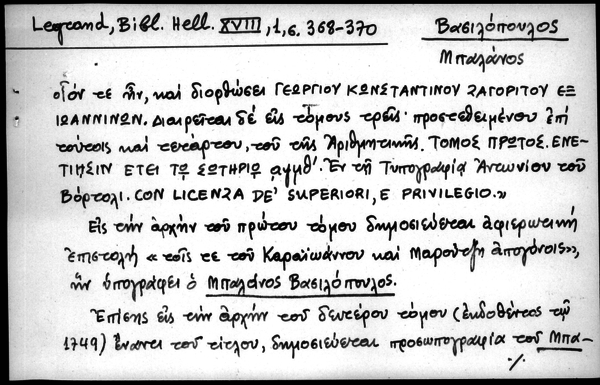 Legrand, Bibl. Hell. XVIII, 1, σ. 368-370
Βασιλόπουλος
Μπαλάνος
οἷόν τε ἦν, καὶ διορθώσει ΓΕΩΡΓΙΟΥ ΚΩΝΣΤΑΝΤΙΝΟΥ ΖΑΓΟΡΙΤΟΥ ΕΞ
ΙΩΑΝΝΙΝΩΝ. Διαιρεῖται δέ εἰς τόμους τρεῖς· προστεθειμένου ἐπὶ
τούτοις καὶ τετάρτου, τοῦ τῆς Ἀριθμητικῆς. ΤΟΜΟΣ ΠΡΩΤΟΣ. ΕΝΕ-
ΤΙΗΣΙΝ ΕΤΕΙ ΤΩ ΣΩΤΗΡΙΩ αψμθ'. Ἐν τῇ Τυπογραφίᾳ Ἀντωνίου τοῦ
Βόρτολι. CON LICENZA DE' SUPERIORI, E PRIVILEGIO.»
Εἰς τὴν ἀρχὴν τοῦ πρώτου τόμου δημοσιεύεται ἀφιερωτικὴ
ἐπιστολὴ « τοῖς τε τοῦ Καραϊωάννου καὶ Μαρούτζη ἀπογόνοις»,
ἣν ὑπογράφει ὁ Μπαλάνος Βασιλόπουλος.
Ἐπίσης εἰς τὴν ἀρχὴν τοῦ δευτέρου τόμου (ἐκδοθέντος τῷ
1749) ἔναντι τοῦ τίτλου, δημοσιεύεται προσωπογραφία τοῦ Μπα-
./.